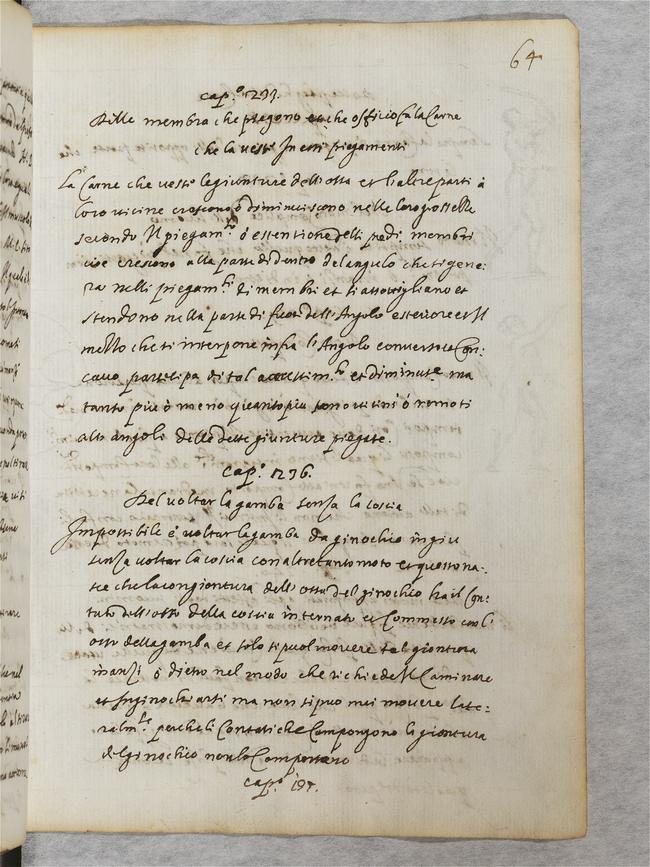 64
cap.º
Delle membra che piegono et che officio fa la Carne
che la veste In essi piegamenti
La Carne che veste le giunture dell'ossa et l'altre parti à
loro vicine crescono ò diminuiscono nelle loro grossesse
secondo Il piegam.to ò estentione delli pd.i membri
cioe crescono alla parte di dentro del angulo che si gene:
ra nelli piegam.ti di membri et si assottigliano et
stendono nella parte di fuori dell'Angolo esteriore et Il
mezzo che si interpone infra l'Angolo convesso e Con:
cauo participa di tal accrescim.to et diminut.e ma
tanto piu ò meno quanto piu sono vicini ò remoti
alli angoli delle dette giunture piegate.
cap.º 1236.
Del voltar la gamba senza la coscia
Impossibile è voltar la gamba da ginochio in giu
senza voltar la coscia con altretanto moto et questo na:
sce che la congiontura dell'osso del ginochio ha il Con:
tatto dell'osso della coscia internato et Commesso con l'
osso della gamba et solo si puol movere tal giontura
inanzi ò dietro nel modo che richiede Il Caminare
et Inginochiarsi ma non si puo mai movere late:
ralm.te perche li Contati che Compongono la giontura
del ginochio non lo Comportano
cap.º